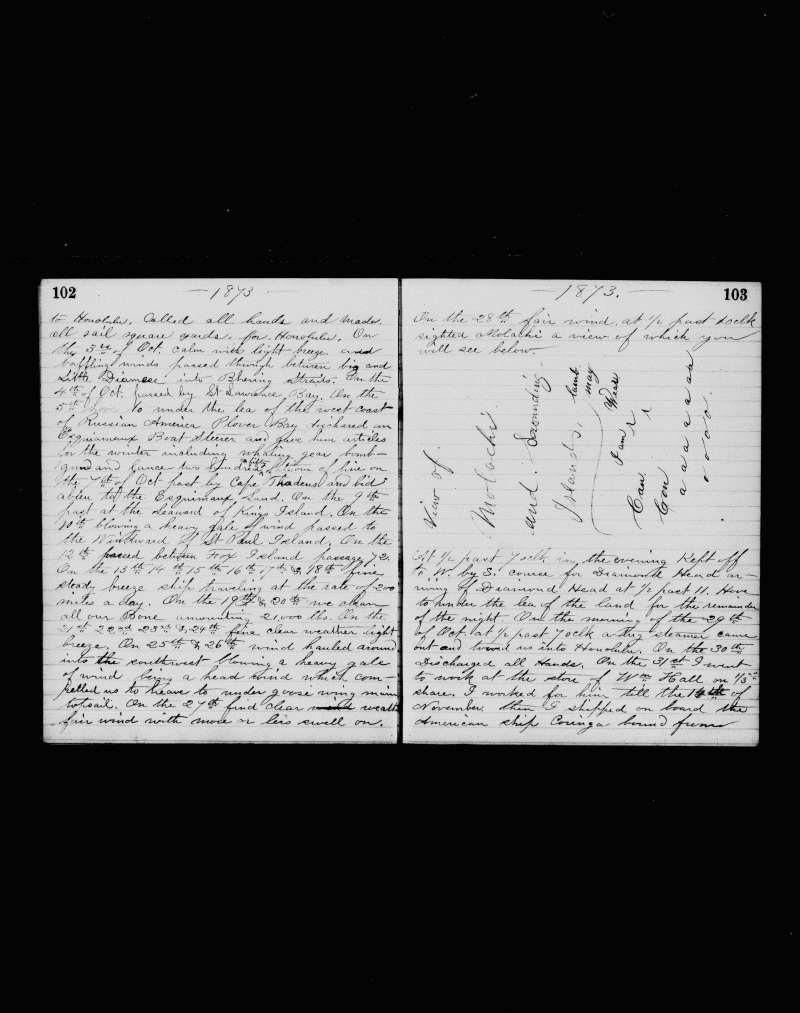 102
— 1873 —
to Honolulu. Called all hands and made
all sail square yards, for Honolulu. On
the 3rd of Oct. calm with light breeze and
baffling winds passed through between big and
Little Diamese into Bhering Straits. On the
4th of Oct. passed by St Lawrence Bay. On the
5th hove to under the lea of the west coast
of Russian America Plover Bay discharged an
Esquimaux Boat Steerer and gave him articles
for the winter including whaling gear bomb-
gun and lance two hundred fathom of line on
the 7th of Oct past by Cape Thadeus and bid
adieu to the Esquimaux Land. On the 9th
past at the leaward of Kings Island. On the
10th blowing a heavy gale of wind passed to
the Windward of St Paul Island. On the
12th passed between Fox Island passage 72.
On the 13th 14th 15th 16th 17th & 18th fine
steady breeze ship traveling at the rate of 200
miles a day. On the 19th & 20th we clean
all our Bone amounting 21,000 lbs. On the
21st 22nd 23rd & 24th fine clear weather light
breeze. On 25th & 26th wind hauled around
into the southwest blowing a heavy gale
of wind being a head wind which com-
pelled us to heave to under goose wing main
topsail. On the 27th find clear weath
fair wind with more or less swell on.
— 1873. —
103
On the 28th fair wind, at ½ past oclk
sighted Molachi a view of which you
will see below.
View of
Molachi
and Srounding
Islands.
lamb
may
Please
I am
Can
Con
a a a a a a a
At ½ past 7 oclk in the evening Kept off
to W. by S. course for Diamonte Head ar-
riving of Deamond Head at ½ past 11. Hove
to under the lea of the land for the remainder
of the night. On the morning of the 29th
of Oct. at ½ past 7 oclk a tug steamer came
out and towed us into Honolulu. On the 30th
Discharged all Hands. On the 31st I went
to work at the store of Wm Hall on 1/3rd
share. I worked for him till the 14th of
November then I shipped on board the
American ship Coringa bound from